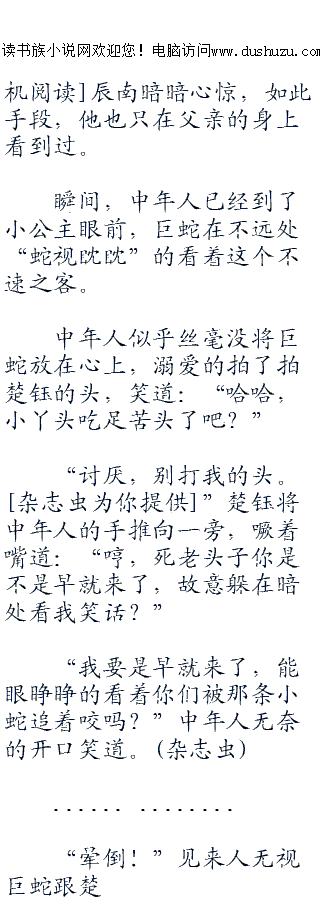 读书族小说网欢迎您！电脑访问www.dushuzu.com
机阅读]辰南暗暗心惊，如此
手段，他也只在父亲的身上
看到过。
瞬间，中年人已经到了
小公主眼前，巨蛇在不远处
“蛇视眈眈”的看着这个不
速之客。
中年人似乎丝毫没将巨
蛇放在心上，溺爱的拍了拍
楚钰的头，笑道：“哈哈，
小丫头吃足苦头了吧？”
“讨厌，别打我的头。
[杂志虫为你提供]”楚钰将
中年人的手推向一旁，噘着
嘴道：“哼，死老头子你是
不是早就来了，故意躲在暗
处看我笑话？”
“我要是早就来了，能
眼睁睁的看着你们被那条小
蛇追着咬吗？”中年人无奈
的开口笑道。(杂志虫)
...... ........
“晕倒！”见来人无视
巨蛇跟楚